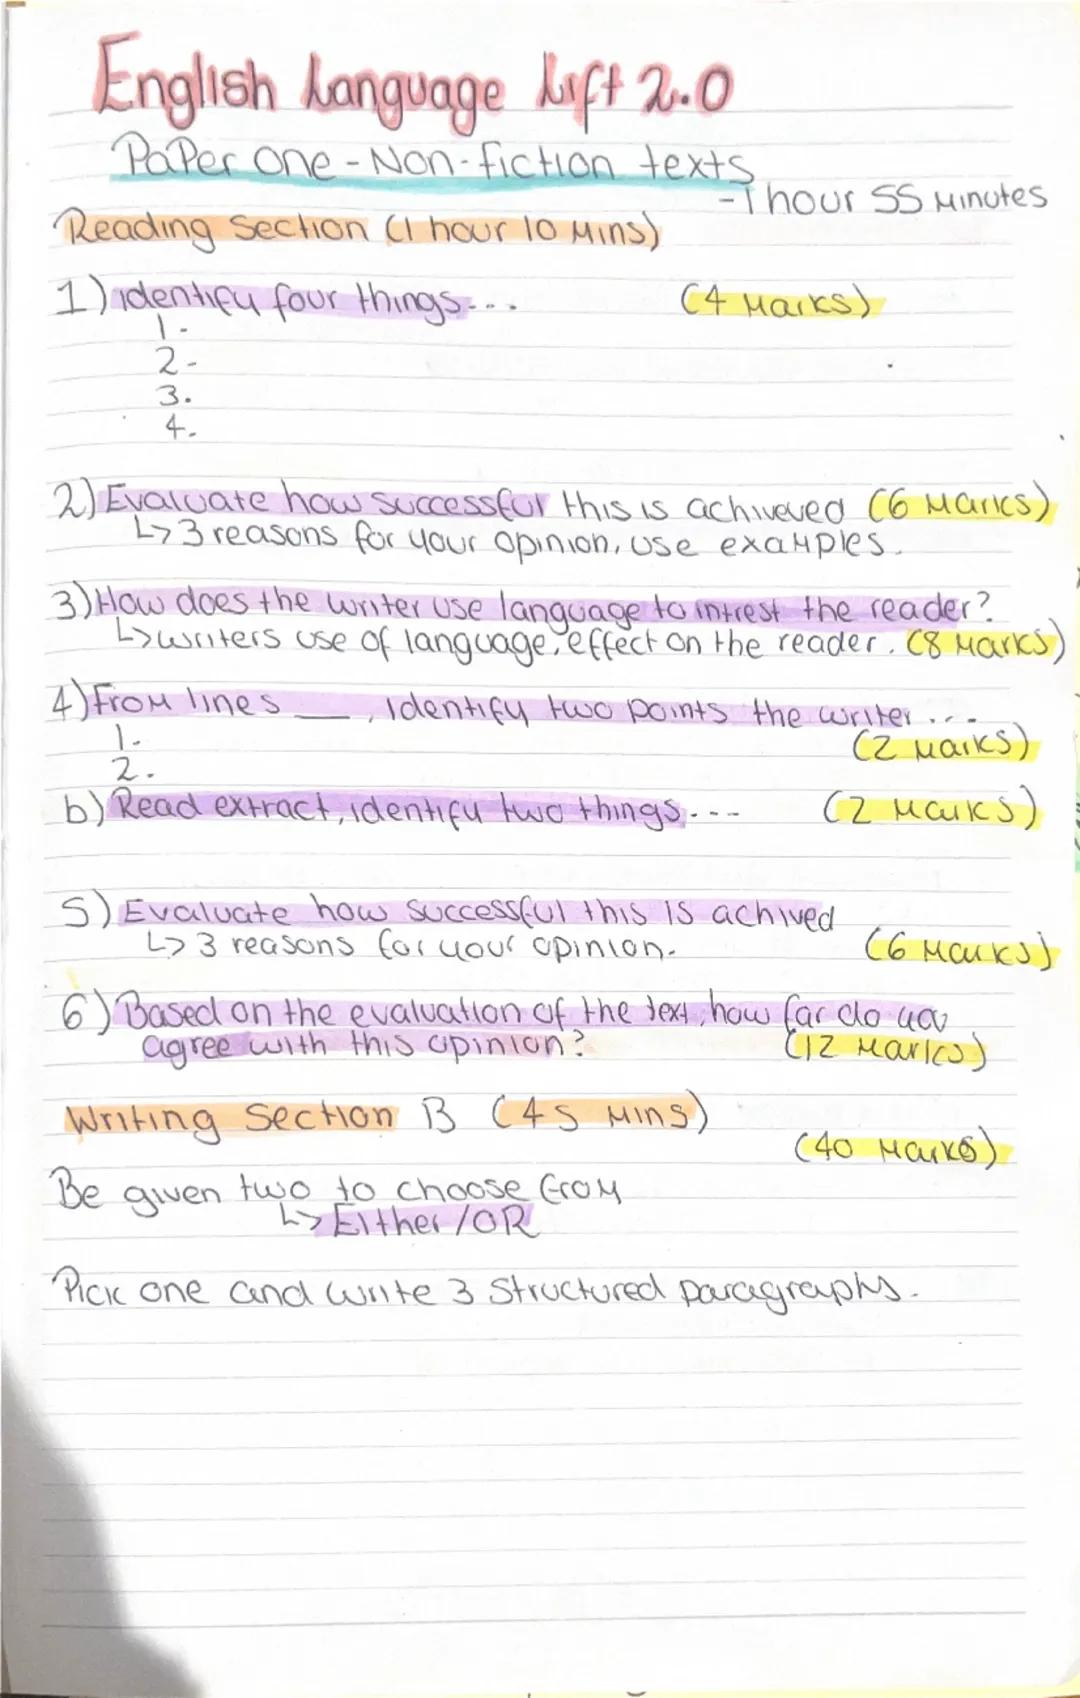 English Language Lift 2.0
Paper one - Non-fiction texts
- 1 hour 55 minutes
Reading Section (1 hour 10 Mins)
1) identify four things... (4 Marks)
1-
2-
3.
4.
2) Evaluate how successful this is achiveved (6 Marks)
↳ 3 reasons for your opinion, use examples.
3) How does the writer use language to intrest the reader?
↳ writers use of language, effect on the reader. (8 Marks)
4) From lines ___, identify two points the writer ...
1. (2 marks)
2.
b) Read extract, identify two things.--- (2 Marks)
5) Evaluate how successful this is achived
↳ 3 reasons for your opinion. (6 Marks)
6) Based on the evaluation of the text, how far do you
agree with this opinion? (12 Marks)
Writing Section B (45 Mins)
(40 Marks)
Be given two to choose from
↳ Either/OR
Pick one and write 3 Structured paragraphs.